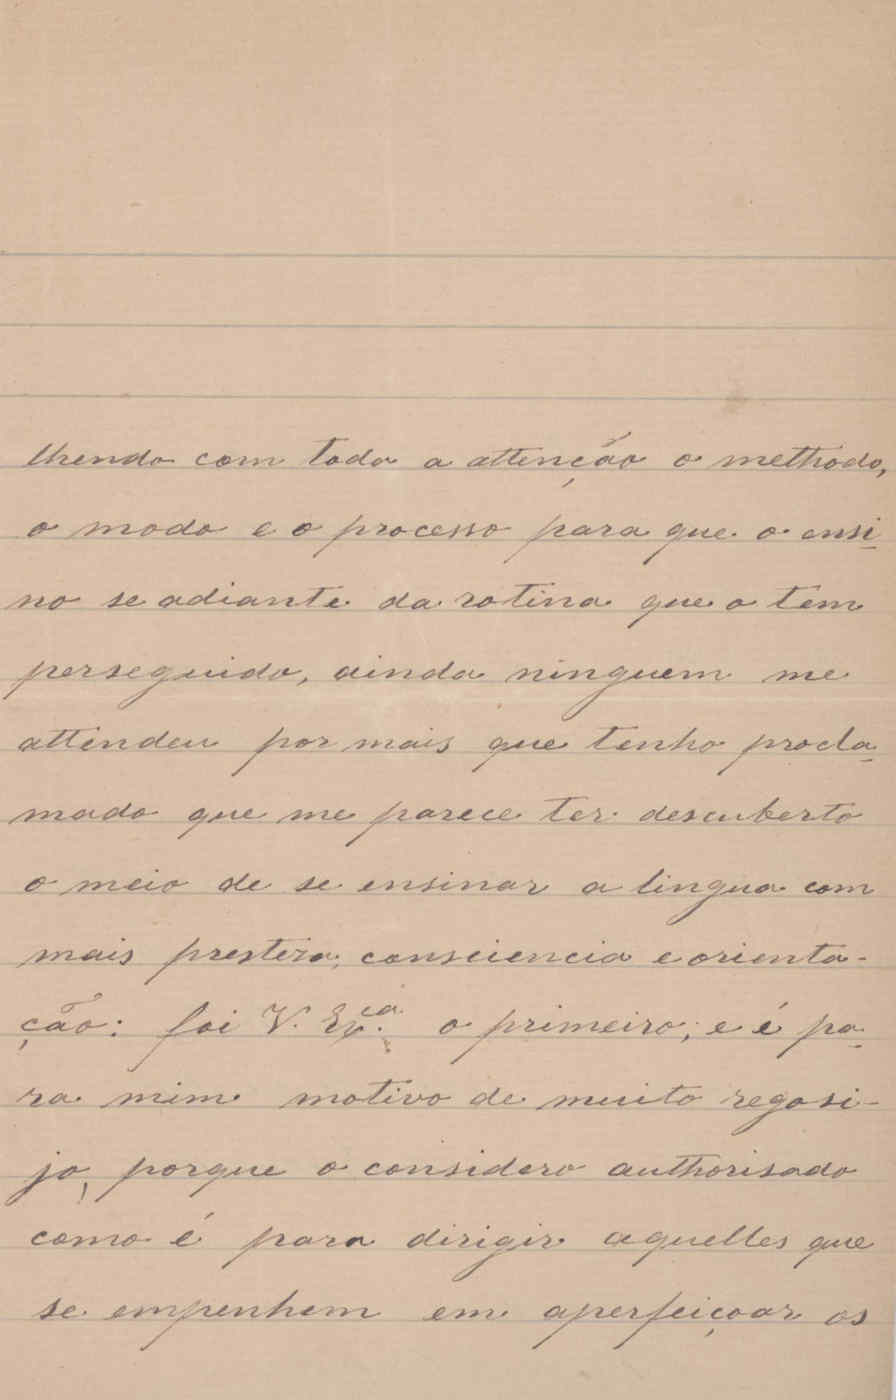 lhendo com toda a attenção o methodo,
o modo e o processo para que o ensi
no se adiante da rotina que o tem
perseguido, ainda ninguem me
attendeu por mais que tenho procla-
mado que me parece ter descuberto
o meio de se ensinar a lingua com
mais presteza, consciencia e orienta-
ção: foi V. Exca. o primeiro; e é pa-
ra mim motivo de muito regosi-
jo, porque o considero authorisado
como é para dirigir aquelles que
se empenhem em aperfeiçoar os